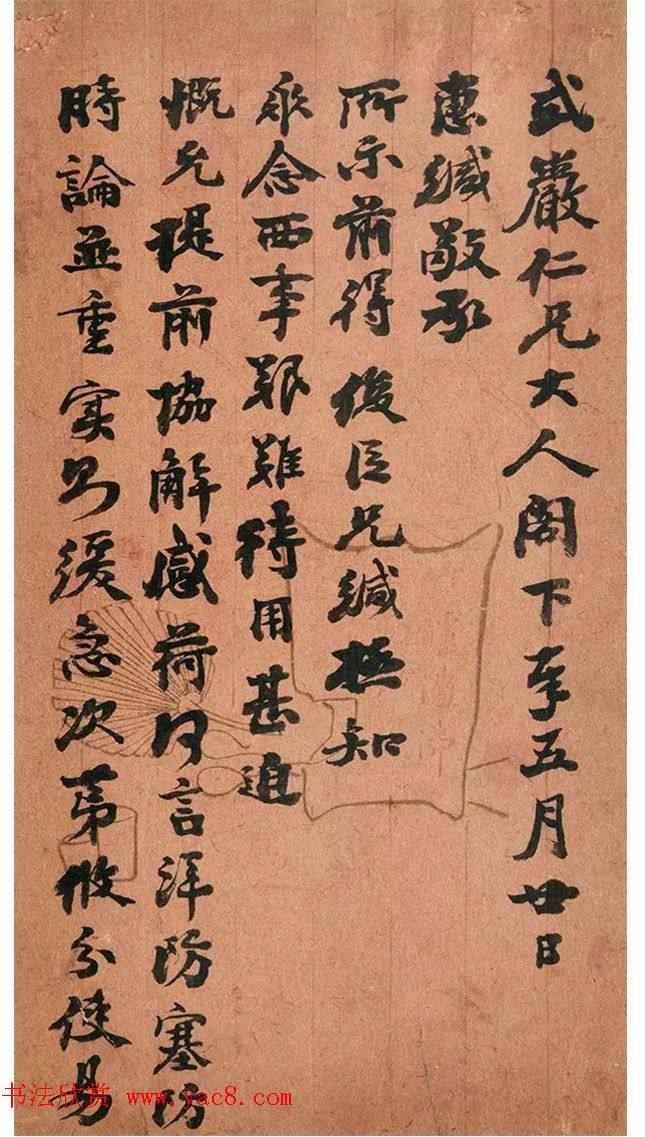 式巖仁兄大人閣下奉五月廿日
惠緘敬承
所示前得俊臣兄緘極知
念西事艱難待用甚迫
慨允提前協解感荷何言洋防塞防
時論並重實則緩急次第攸分使易
书法欣赏 www.yac8.com